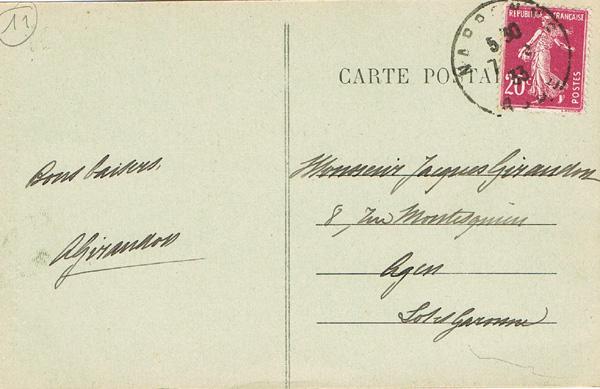 11
CARTE POSTA
REPUBLIQUE FRANÇAISE
20c
POSTES
NARBONNE
5 30
7 2
33
Bons baisers,
AGiraudon
Monsieur Jacques Giraudon
8, rue Montesquieu
Agen
Lot et Garonne